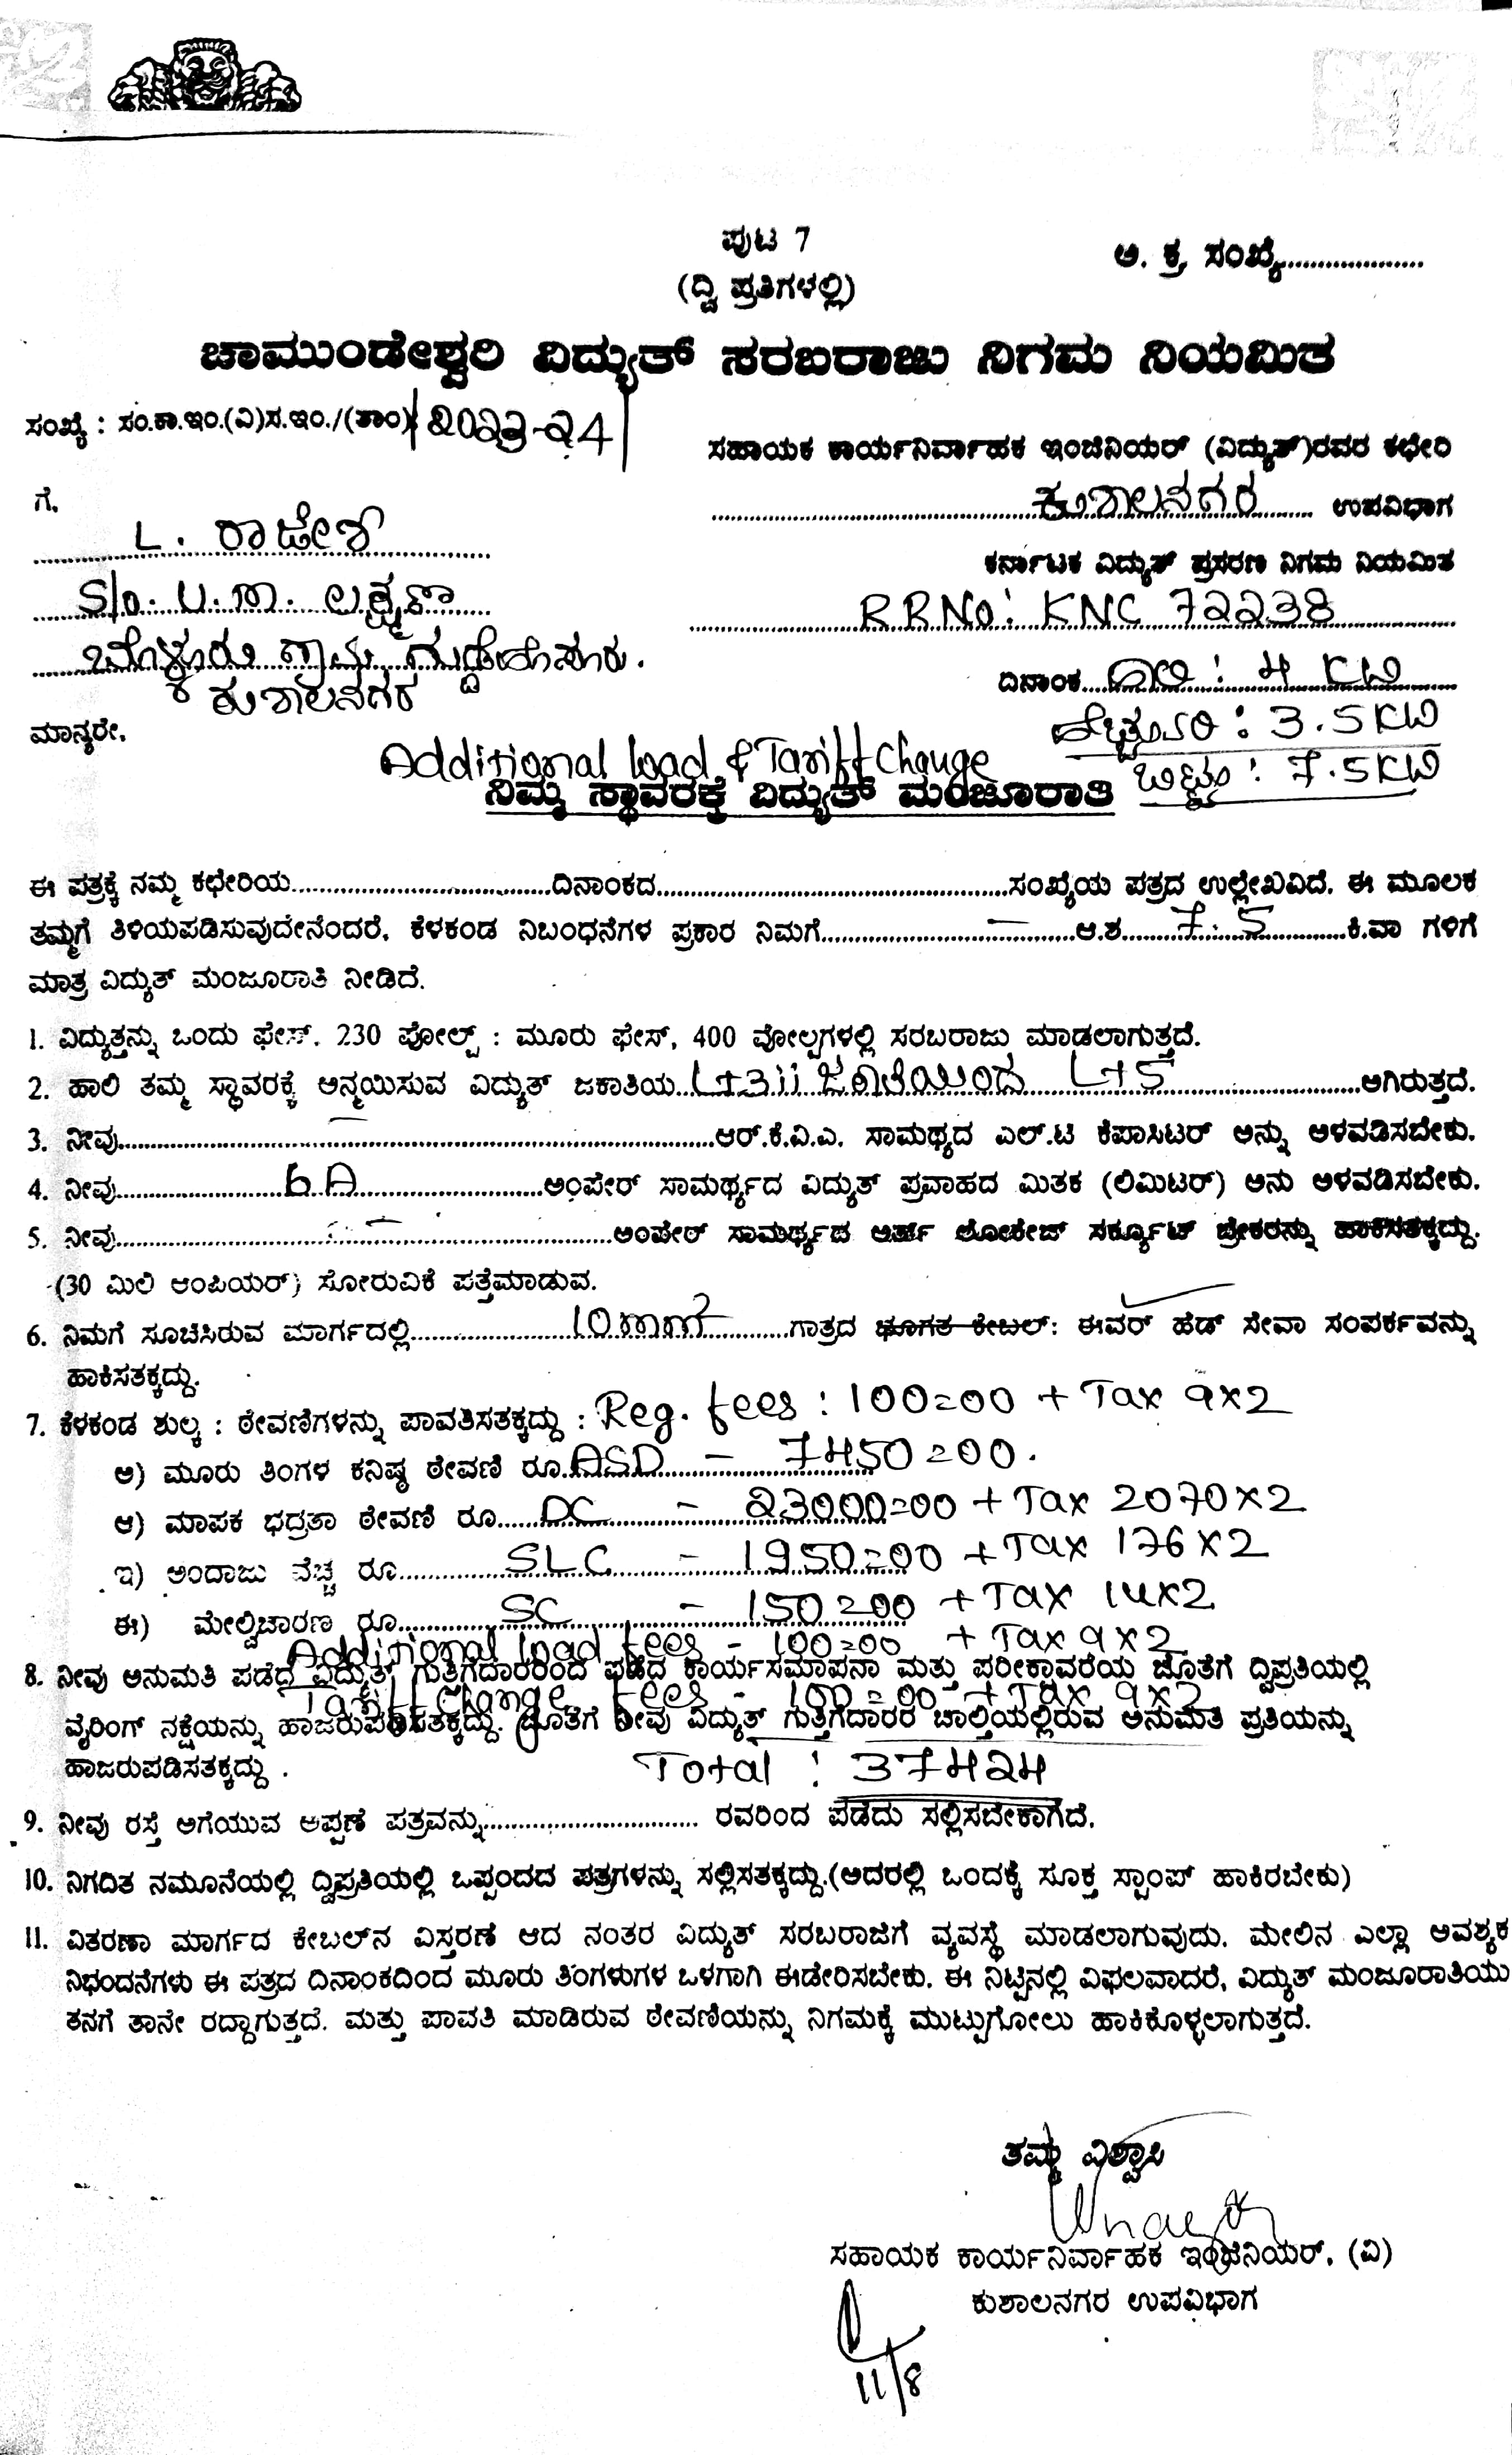 ಪುಟ 7
ಅ. ಕ್ರ. ಸಂಖ್ಯೆ....................
(ದ್ವಿ ಪ್ರತಿಗಳಲ್ಲಿ)
ಚಾಮುಂಡೇಶ್ವರಿ ವಿದ್ಯುತ್ ಸರಬರಾಜು ನಿಗಮ ನಿಯಮಿತ
ಸಂಖ್ಯೆ : ಸಂ.ಕಾ.ಇಂ.(ವಿ)ಸ.ಇಂ./(ತಾಂ)/2023-24/
ಸಹಾಯಕ ಕಾರ್ಯನಿರ್ವಾಹಕ ಇಂಜಿನಿಯರ್ (ವಿದ್ಯುತ್)ರವರ ಕಛೇರಿ
ಕುಶಾಲನಗರ ಉಪವಿಭಾಗ
ಗೆ.
L. ರಾಜೇಶ್
ಕರ್ನಾಟಕ ವಿದ್ಯುತ್ ಪ್ರಸರಣ ನಿಗಮ ನಿಯಮಿತ
S/o. U.M. ಲಕ್ಷ್ಮಣ
RRNo: KNC 72238
ಗ್ರಾಮ
ಕುಶಾಲನಗರ
ದಿನಾಂಕ ಹಾಲಿ : 4 KW
ಮಾನ್ಯರೇ,
ಹೆಚ್ಚುವರಿ : 3.5 KW
Additional load & Tariff Change
ಒಟ್ಟು : 7.5 KW
ನಿಮ್ಮ ಸ್ಥಾವರಕ್ಕೆ ವಿದ್ಯುತ್ ಮಂಜೂರಾತಿ
ಈ ಪತ್ರಕ್ಕೆ ನಮ್ಮ ಕಛೇರಿಯ..............................ದಿನಾಂಕದ..............................ಸಂಖ್ಯೆಯ ಪತ್ರದ ಉಲ್ಲೇಖವಿದೆ. ಈ ಮೂಲಕ
ತಮ್ಮಗೆ ತಿಳಿಯಪಡಿಸುವುದೇನೆಂದರೆ, ಕೆಳಕಂಡ ನಿಬಂಧನೆಗಳ ಪ್ರಕಾರ ನಿಮಗೆ.......... — ..........ಆ.ಶ......7.5......ಕಿ.ವಾ ಗಳಿಗೆ
ಮಾತ್ರ ವಿದ್ಯುತ್ ಮಂಜೂರಾತಿ ನೀಡಿದೆ.
1. ವಿದ್ಯುತ್ತನ್ನು ಒಂದು ಫೇಸ್. 230 ವೋಲ್ಟ್ : ಮೂರು ಫೇಸ್, 400 ವೋಲ್ಟಗಳಲ್ಲಿ ಸರಬರಾಜು ಮಾಡಲಾಗುತ್ತದೆ.
2. ಹಾಲಿ ತಮ್ಮ ಸ್ಥಾವರಕ್ಕೆ ಅನ್ವಯಿಸುವ ವಿದ್ಯುತ್ ಜಕಾತಿಯ..LT3ii ಜಕಾತಿಯಿಂದ LT5..........ಆಗಿರುತ್ತದೆ.
3. ನೀವು.......... — ..........ಆರ್.ಕೆ.ವಿ.ಎ. ಸಾಮಥ್ಯದ ಎಲ್.ಟಿ ಕೆಪಾಸಿಟರ್ ಅನ್ನು ಅಳವಡಿಸಬೇಕು.
4. ನೀವು..........6 A..........ಅಂಪೇರ್ ಸಾಮರ್ಥ್ಯದ ವಿದ್ಯುತ್ ಪ್ರವಾಹದ ಮಿತಕ (ಲಿಮಿಟರ್) ಅನು ಅಳವಡಿಸಬೇಕು.
5. ನೀವು.......... — ..........ಅಂಪೇರ್ ಸಾಮರ್ಥ್ಯದ ಅರ್ತ್ ಲೋಕೇಜ್ ಸರ್ಕ್ಯೂಟ್ ಬ್ರೇಕರನ್ನು ಹಾಕಿಸತಕ್ಕದ್ದು.
(30 ಮಿಲಿ ಆಂಪಿಯರ್) ಸೋರುವಿಕೆ ಪತ್ತೆಮಾಡುವ.
6. ನಿಮಗೆ ಸೂಚಿಸಿರುವ ಮಾರ್ಗದಲ್ಲಿ..........10mm²..........ಗಾತ್ರದ ಭೂಗತ ಕೇಬಲ್: ಈವರ್ ಹೆಡ್ ಸೇವಾ ಸಂಪರ್ಕವನ್ನು
ಹಾಕಿಸತಕ್ಕದ್ದು.
7. ಕೆಳಕಂಡ ಶುಲ್ಕ : ಠೇವಣಿಗಳನ್ನು ಪಾವತಿಸತಕ್ಕದ್ದು : Reg. fees : 100=00 + Tax 9x2
ಅ) ಮೂರು ತಿಂಗಳ ಕನಿಷ್ಠ ಠೇವಣಿ ರೂ.ASD - 7450=00.
ಆ) ಮಾಪಕ ಭದ್ರತಾ ಠೇವಣಿ ರೂ.....DC - 23000=00 + Tax 2070x2
ಇ) ಅಂದಾಜು ವೆಚ್ಚ ರೂ..........SLC - 1950=00 + Tax 176x2
ಈ) ಮೇಲ್ವಿಚಾರಣ ರೂ..........SC - 150=00 + Tax 14x2
Additional load fees - 100=00 + Tax 9x2
8. ನೀವು ಅನುಮತಿ ಪಡೆದ ವಿದ್ಯುತ್ ಗುತ್ತಿಗೆದಾರರಿಂದ ಪಡೆದ ಕಾರ್ಯಸಮಾಪನಾ ಮತ್ತು ಪರೀಕ್ಷಾವರೆಯ ಜೊತೆಗೆ ದ್ವಿಪ್ರತಿಯಲ್ಲಿ
Tariff Change fees - 100=00 + Tax 9x2
ವೈರಿಂಗ್ ನಕ್ಷೆಯನ್ನು ಹಾಜರುಪಡಿಸತಕ್ಕದ್ದು. ಜೊತೆಗೆ ನೀವು ವಿದ್ಯುತ್ ಗುತ್ತಿಗೆದಾರರ ಚಾಲ್ತಿಯಲ್ಲಿರುವ ಅನುಮತಿ ಪ್ರತಿಯನ್ನು
ಹಾಜರುಪಡಿಸತಕ್ಕದ್ದು . Total : 37424
9. ನೀವು ರಸ್ತೆ ಅಗೆಯುವ ಅಪ್ಪಣೆ ಪತ್ರವನ್ನು.............................. ರವರಿಂದ ಪಡೆದು ಸಲ್ಲಿಸಬೇಕಾಗಿದೆ.
10. ನಿಗದಿತ ನಮೂನೆಯಲ್ಲಿ ದ್ವಿಪ್ರತಿಯಲ್ಲಿ ಒಪ್ಪಂದದ ಪತ್ರಗಳನ್ನು ಸಲ್ಲಿಸತಕ್ಕದ್ದು.(ಅದರಲ್ಲಿ ಒಂದಕ್ಕೆ ಸೂಕ್ತ ಸ್ಟಾಂಪ್ ಹಾಕಿರಬೇಕು)
11. ವಿತರಣಾ ಮಾರ್ಗದ ಕೇಬಲ್‌ನ ವಿಸ್ತರಣೆ ಆದ ನಂತರ ವಿದ್ಯುತ್ ಸರಬರಾಜಿಗೆ ವ್ಯವಸ್ಥೆ ಮಾಡಲಾಗುವುದು. ಮೇಲಿನ ಎಲ್ಲಾ ಅವಶ್ಯಕ
ನಿಭಂದನೆಗಳು ಈ ಪತ್ರದ ದಿನಾಂಕದಿಂದ ಮೂರು ತಿಂಗಳುಗಳ ಒಳಗಾಗಿ ಈಡೇರಿಸಬೇಕು. ಈ ನಿಟ್ಟಿನಲ್ಲಿ ವಿಫಲವಾದರೆ, ವಿದ್ಯುತ್ ಮಂಜೂರಾತಿಯು
ತನಗೆ ತಾನೇ ರದ್ದಾಗುತ್ತದೆ. ಮತ್ತು ಪಾವತಿ ಮಾಡಿರುವ ಠೇವಣಿಯನ್ನು ನಿಗಮಕ್ಕೆ ಮುಟ್ಟುಗೋಲು ಹಾಕಿಕೊಳ್ಳಲಾಗುತ್ತದೆ.
ತಮ್ಮ ವಿಶ್ವಾಸಿ
ಸಹಾಯಕ ಕಾರ್ಯನಿರ್ವಾಹಕ ಇಂಜಿನಿಯರ್, (ವಿ)
ಕುಶಾಲನಗರ ಉಪವಿಭಾಗ
11/8